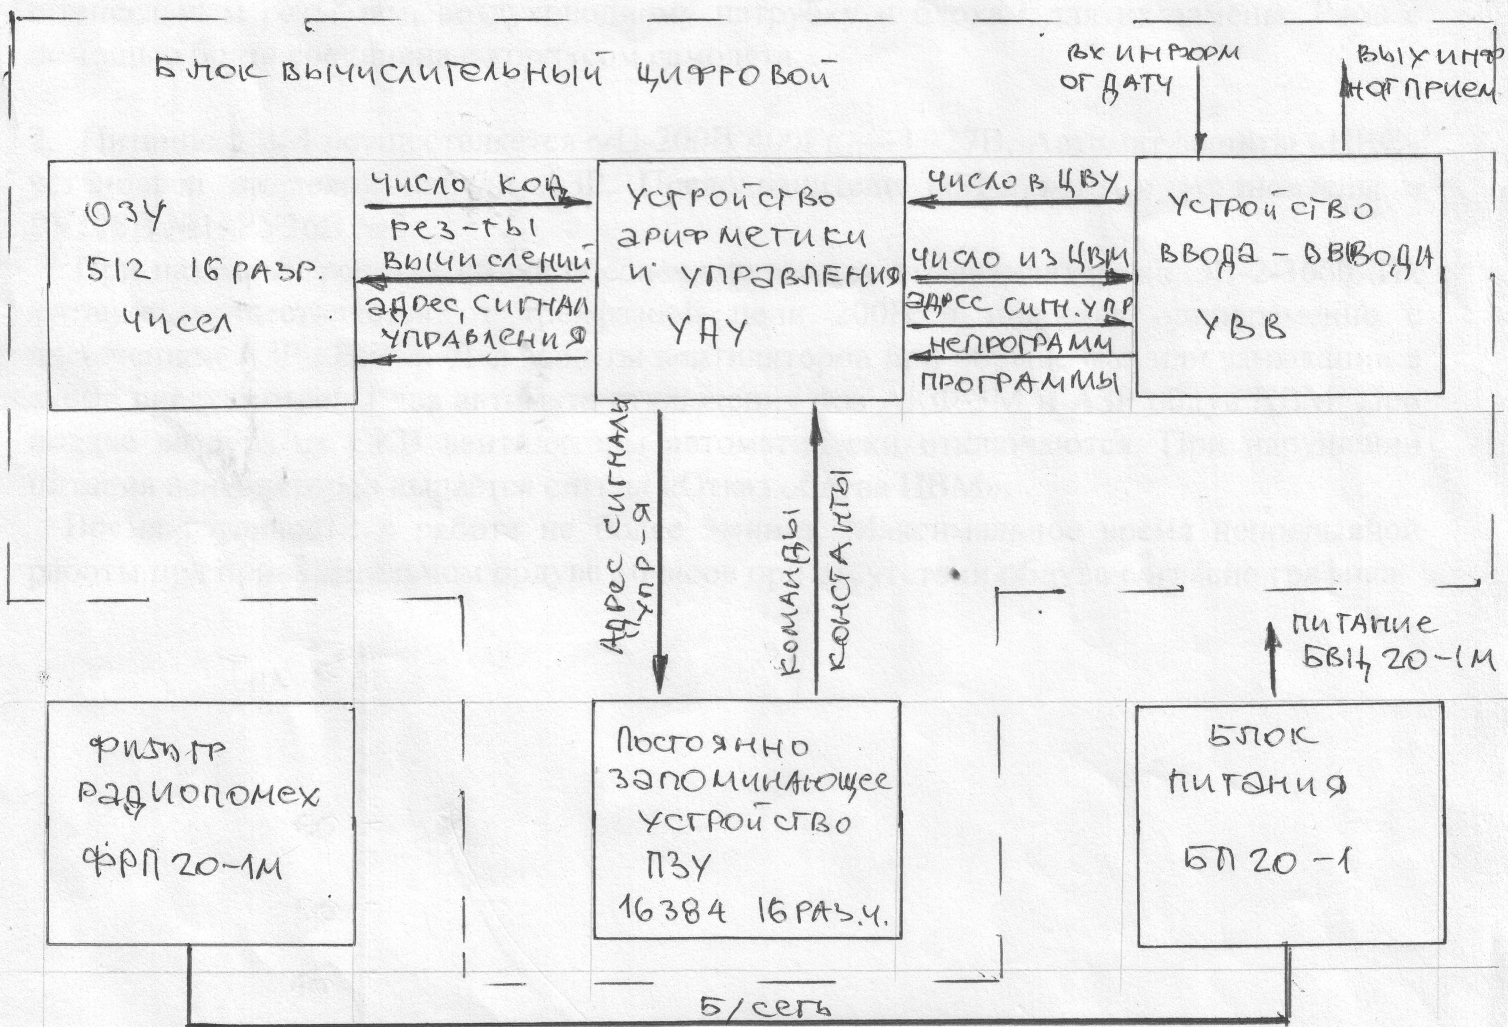 БЛОК ВЫЧИСЛИТЕЛЬНЫЙ ЦИФРОВОЙ
ВХ ИНФОРМ
ОТ ДАТЧ
ВЫХ ИНФ
НОТ ПРИЕМ
ОЗУ
512 16 РАЗР.
ЧИСЕЛ
ЧИСЛО, КОД
РЕЗ-ТЫ
ВЫЧИСЛЕНИЙ
АДРЕС, СИГНАЛ
УПРАВЛЕНИЯ
УСТРОЙСТВО
АРИФМЕТИКИ
И УПРАВЛЕНИЯ
УАУ
ЧИСЛО В ЦВУ
ЧИСЛО ИЗ ЦВМ
АДРЕС СИГН. УПР
НЕПРОГРАММ
ПРОГРАММЫ
УСТРОЙСТВО
ВВОДА - ВЫВОДА
УВВ
АДРЕС СИГНАЛЫ
УПР Я
КОМАНДЫ
КОНСТАНТЫ
ПИТАНИЕ
БВЦ 20-1М
ФИЛЬТР
РАДИОПОМЕХ
ФРП 20-1М
ПОСТОЯННО
ЗАПОМИНАЮЩЕЕ
УСТРОЙСТВО
ПЗУ
16384 16 РАЗ.Ч.
БЛОК
ПИТАНИЯ
БП 20-1
Б/СЕТЬ